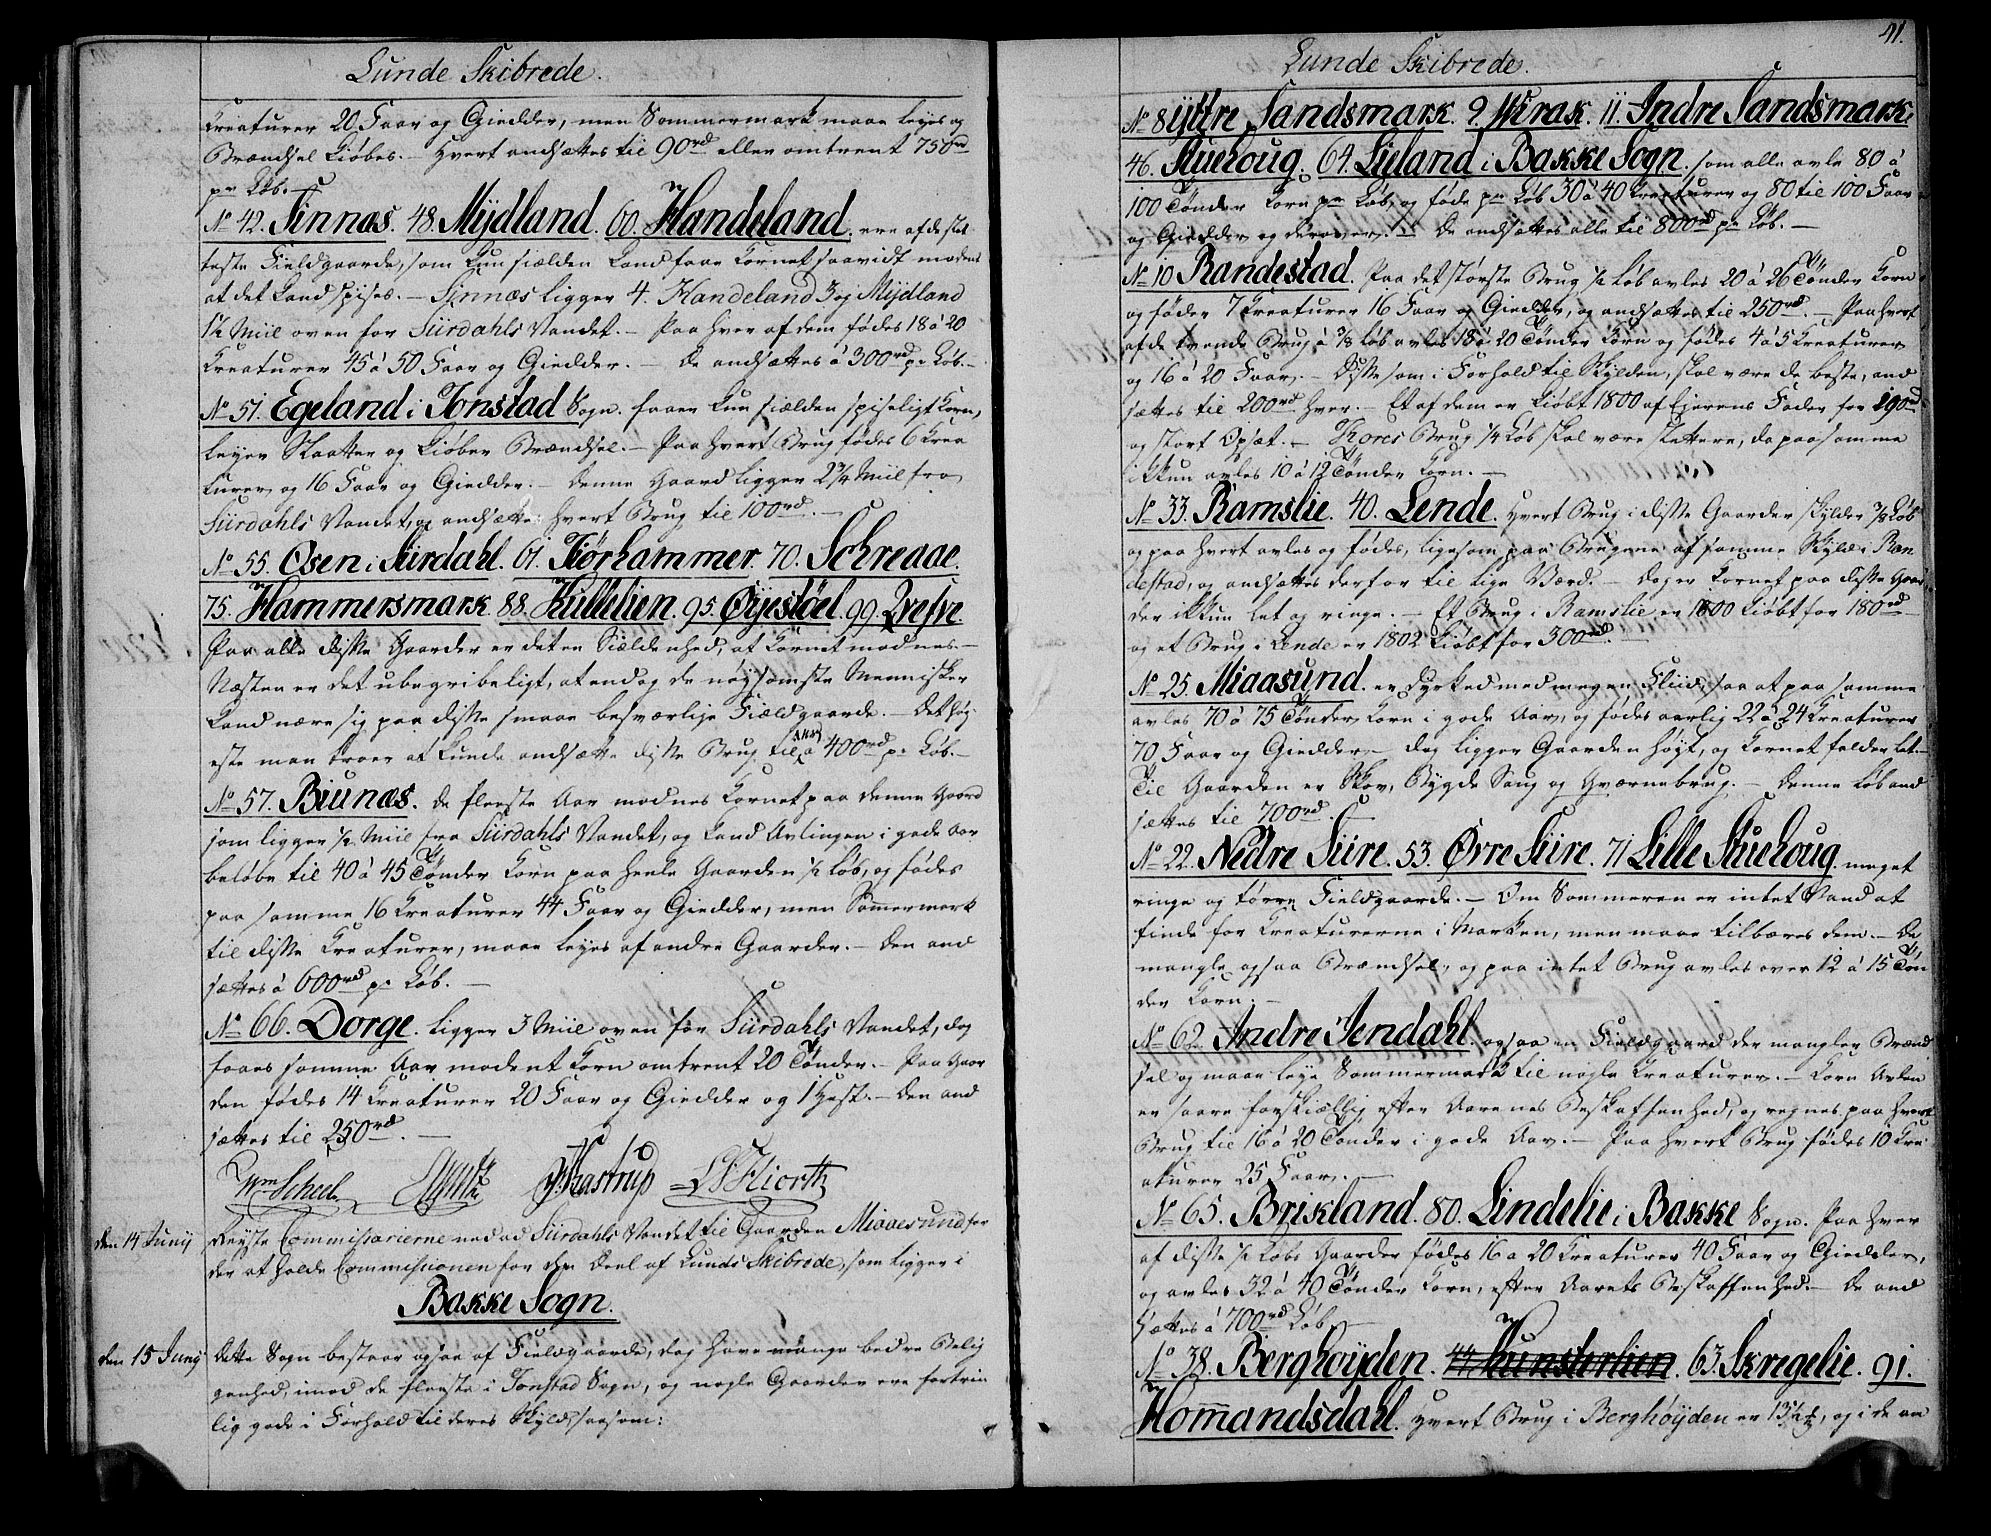 Lunde Skibrede.
Kreaturer 20 Faar og Giedder, men Sommermark maae leyes og
Brændsel kiøbes. – Hvert ansættes til 90rd eller omtrent 750rd
pr Løb. –
No 42. Sinnæs. 48. Mydland. 60. Handeland. ere af de slet
teste Fieldgaarde, som kun siælden kand faae Kornet saavidt modent
at det kand spises. – Sinnæs ligger 4. Handeland 3 og Mydland
1½ Miil oven for Siirdahls Vandet. – Paa hver af dem fødes 18 à 20
Kreaturer 45 à 50 Faar og Giedder. – De andsættes à 300rd pr Løb. –
No 51. Egeland i Tonstad Sogn. faaer kun siælden spiseligt Korn,
leyer Slaatter og kiøber Brændsel. – Paa hvert Brug fødes 6 Krea
turer og 16 Faar og Giedder. – Denne Gaard ligger 2¾ Miil fra
Siirdahls Vandet, og andsættes hvert Brug til 100rd. –
No 55. Øsen i Siirdahl. 61. Kiørhammer. 70. Schreaae.
75. Hammersmark 88. Kullelien. 95. Øyestøel. 99. Qvefve.
Paa alle disse Gaarder er det en Sieldenhed, at Kornet modnes. –
Næsten er det ubegribeligt, at endog de nøysomste Mennisker
kand nære sig paa disse smaae besværlige Fieldgaarde. – Det høy
este man troer at kunde andsætte disse Brug til à 400rd pr Løb. –
No 57. Biunæs. De fleeste Aar modnes Kornet paa denne Gaard
som ligger ½ Miil fra Siirdahls Vandet, og kand Avlingen i gode Aar
beløbe til 40 à 45 Tønder Korn paa heele Gaarden ½ Løb, og fødes
paa samme 16 Kreaturer 44 Faar og Giedder, men Sommermark
til disse Kreaturer, maae leyes af andre Gaarder. – Den and
sættes à 600rd pr Løb. –
No 66. Dorge. ligger 3 Miil oven for Siirdahls Vandet, dog
faaes somme Aar modent Korn omtrent 20 Tønder. – Paa Gaar
den fødes 14 Kreaturer 20 Faar og Giedder og 1 Hest. – Den and
sættes til 250rd. –
Wm Scheel. Hastrup LF Hiorth
den 14 Junij Reyste Commissarierne ned ad Siirdahls Vandet til Gaarden Miaaesund for
der at holde Commissionen for den Deel af Lunds Skibrede, som ligger i
Bakke Sogn.
den 15 Junij Dette Sogn bestaar ogsaa af Fieldgaarde, dog have mange bedre Belig
genhed, imod de fleeste i Tonstad Sogn, og nogle Gaarder ere fortrin
lig gode i Forhold til deres Skyld, saasom:
41.
Lunde Skibrede.
No 8 Yttre Sandsmark. 9. Virak. 11. Indre Sandsmark.
46. Stueroug. 64. Lieland i Bakke Sogn. som alle avle 80 à
100 Tønder Korn pr Løb, og føde pr Løb 30 à 40 Kreaturer og 80 til 100 Faar
og Giedder og derover. – De andsættes alle til 800rd pr Løb. –
No 10 Randestad. Paa det største Brug ½ Løb avles 20 à 26 Tønder Korn
og føder 7 Kreaturer 16 Faar og Giedder, og andsættes til 250rd. – Paa hvert
af de tvende Brug à ⅜ Løb avles 18 à 20 Tønder Korn og fødes 4 à 5 Kreaturer
og 16 à 20 Faar. – Disse som i Forhold til Skylden, skal være de beste, and
sættes til 200rd hver. – Et af dem er kiøbt 1800 af Ejerens Fader for 290rd
og stort Opsæt. – Tores Brug ¼ Løb skal være slettere, da paa samme
ikkun avles 10 à 12 Tønder Korn. –
No 33. Ramslie. 40. Lende. Hvert Brug i disse Gaarder skylder ⅜ Løb
og paa hvert avles og fødes, ligesom paa Brugene af samme Skyld i Ran
destad, og andsættes derfor til lige Værd. – Dog er Kornet paa disse Gaar
der ikkun let og ringe. – Et Brug i Ramslie er 1800 kiøbt for 180rd
og et Brug i Lende er 1802 kiøbt for 300rd.
No 25. Miaasund. er dyrked med megen Fliid, saa at paa samme
avles 70 à 75 Tønder Korn i gode Aar, og fødes aarlig 22 à 24 Kreaturer
70 Faar og Giedder – dog ligger Gaarden høyt, og Kornet falder let. –
Til Gaarden er Skov, Bygde Saug og Qværnebrug. – Denne Løb and
sættes til 700rd. –
No 22. Nedre Siire. 53. Øvre Siire. 71 Lille Stueroug. meget
ringe og tørre Fieldgaarde. – Om Sommeren er intet Vand at
finde for Kreaturerne i Marken, men maae tilbæres dem. – De
mangle ogsaa Brændsel, og paa intet Brug avles over 12 à 15 Tøn
der Korn. –
No 62. Indre Jendahl. ogsaa en Fieldgaard der mangler Brænd
sel og maae leye Sommermark til nogle Kreaturer. – Korn Avlen
er saare forskiællig efter Aarenes Beskaffenhed, og regnes paa hvert
Brug til 16 à 20 Tønder i gode Aar. – Paa hvert Brug fødes 10 Kre
aturer 25 Faar. –
No 65. Brikland. 80. Lindelie i Bakke Sogn. Paa hver
af disse ½ Løbs Gaarder fødes 16 à 20 Kreaturer 40 Faar og Giedder,
og avles 32 à 40 Tønder Korn, efter Aarets Beskaffenhed. – De and
sættes à 700rd Løb. –
No 38. Berghøyden. 44. Kunsterlien. 63. Skregelie. 91.
Homandsdahl. Hvert Brug i Berghøyden er 13½ , og i de an